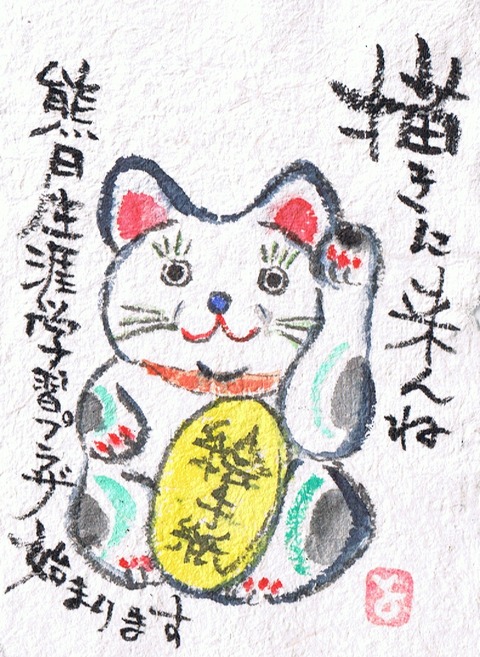 描きに来んね
熊日生涯学習プラザ
始まります
絵手紙
と